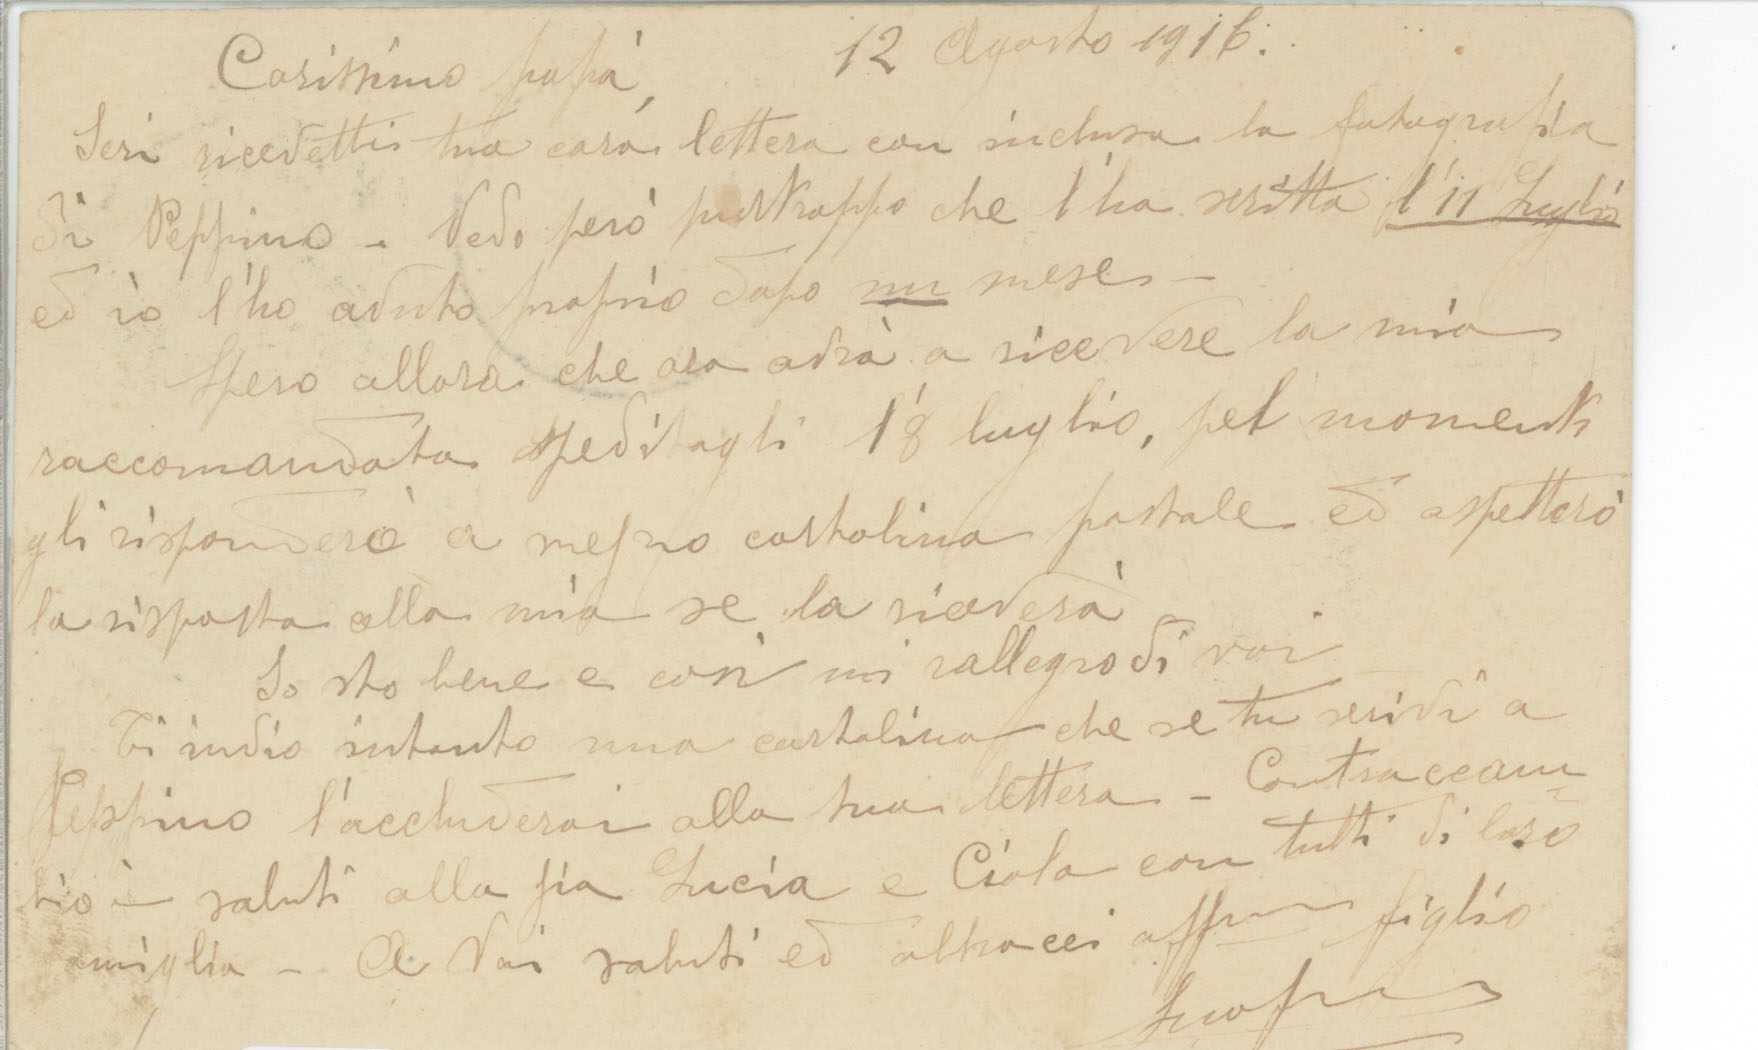 12 Agosto 1916.
Carissimo papà,
Ieri ricevetti tua cara lettera con inclusa la fotografia
di Peppino - Vedo però purtroppo che l'ha scritta l'11 Luglio
ed io l'ho avuto proprio dopo un mese -
Spero allora che ora avrà a ricevere la mia
raccomandata speditagli l'8 luglio, pel momento
gli risponderò a mezzo cartolina postale ed aspetterò
la risposta alla mia se la riceverà
Io sto bene e così mi rallegro di voi
Ti invio intanto una cartolina che se tu scrivi a
Peppino l'accluderai alla tua lettera - Contraccam
bio i saluti alla zia Lucia e Ciola con tutti di loro
famiglia - A Voi saluti ed abbracci aff figlio